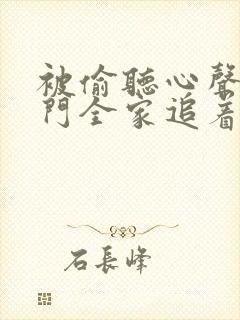 被偷聽心聲
門全家追着
石長峰